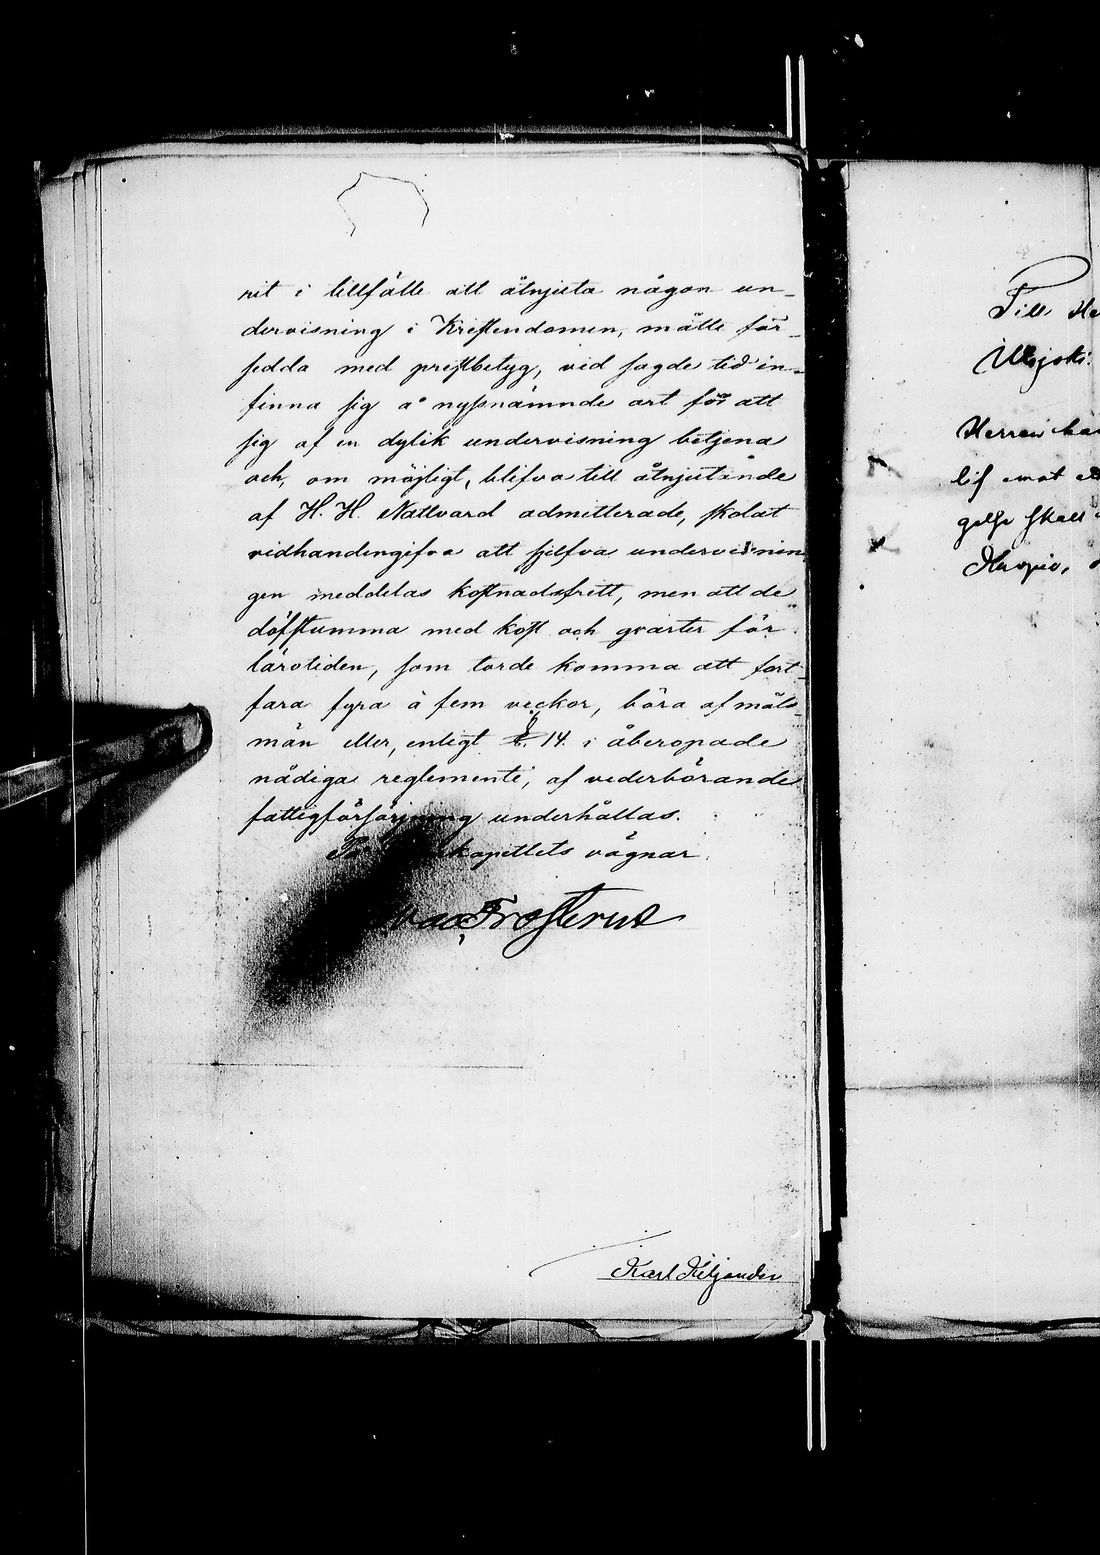 rit i tillfälle att åtnjuta någon un-
dervisning i Kristendomen, måtte för-
sedda med prestbetyg, vid sagde tid in-
finna sig å nyssnämnde ort för att
sig af en dylik undervisning betjena
och, om möjligt, blifva till åtnjutande
af H. H. Nattvard admitterade, skolat
vidhandengifva att sjelfva undervisnin
gen meddelas kostnadsfritt, men att de
döfstumma med kost och qvarter för
lärotiden, som torde komma att fort-
fara fyra à fem veckor, böra af måls-
män eller, enligt § 14. i åberopade
nådiga reglemente, af vederbörande
fattigförsörjning underhållas.
kapitlets vägnar.
Frosterus
Karl Kiljander
Till He
Utsjoki
Herren ha
lif emot
gelse skall
Kuopio,